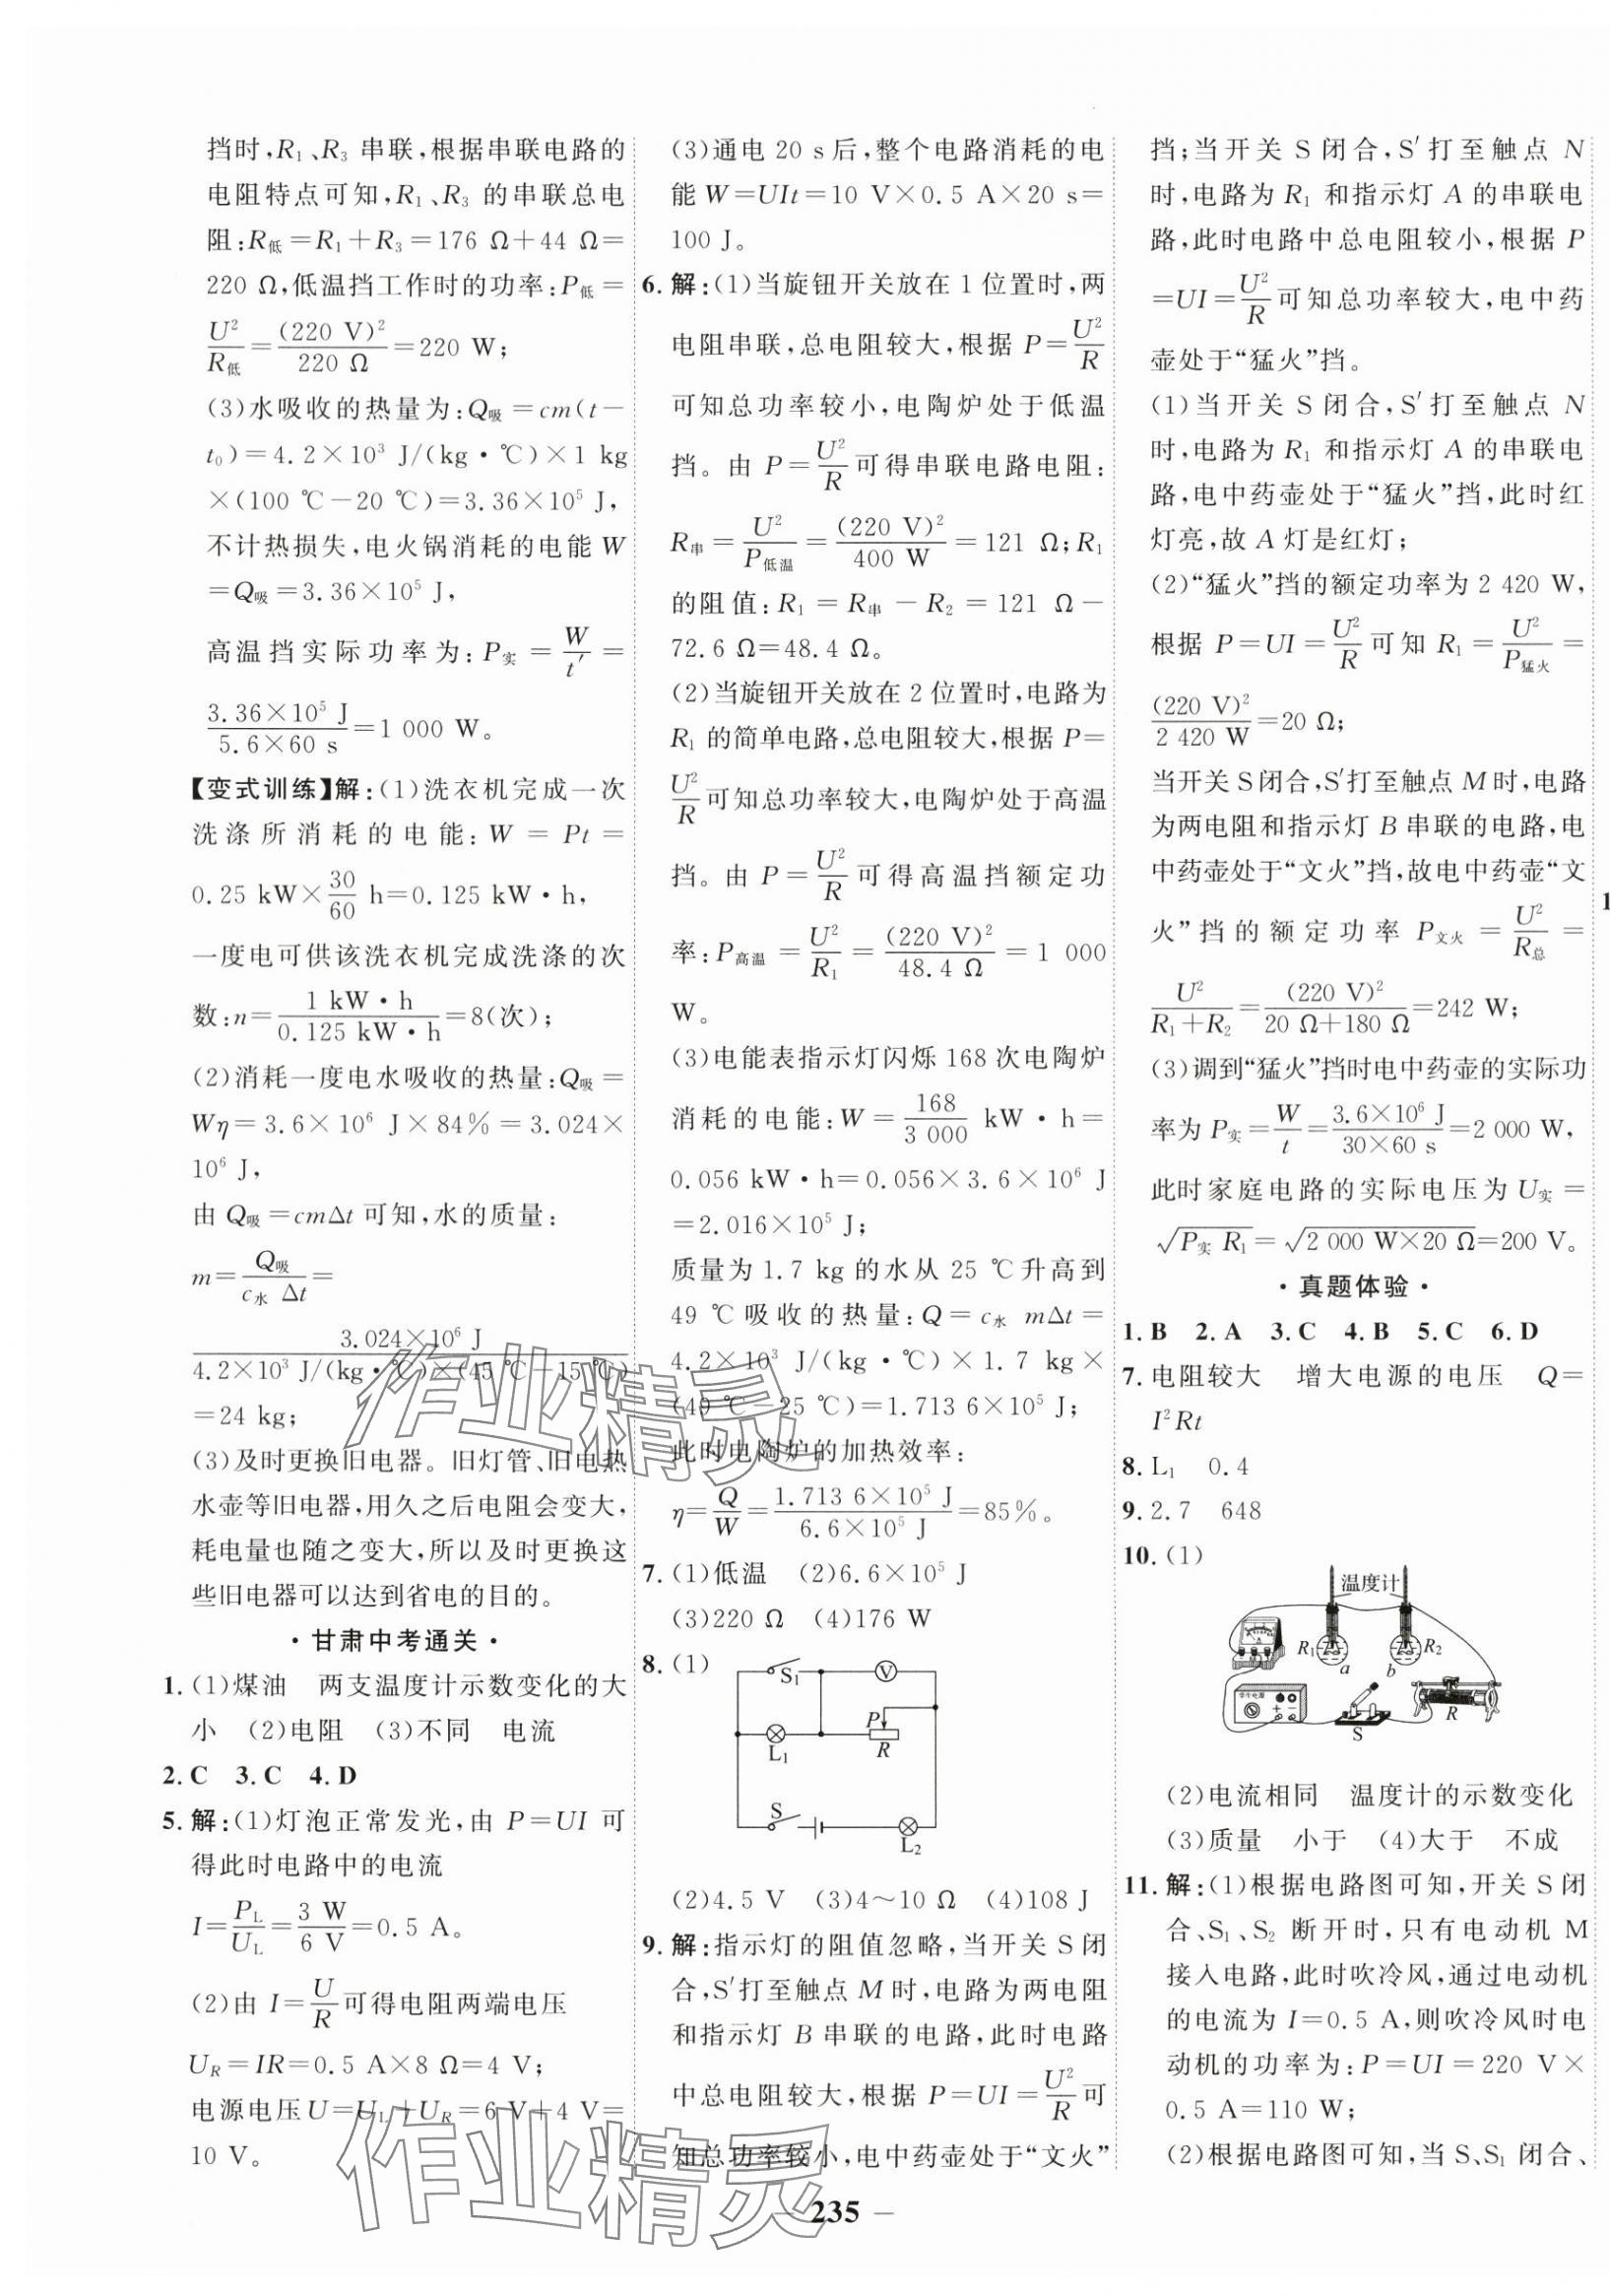 挡时,R₁、R₃ 串联,根据串联电路的
电阻特点可知,R₁、R₃ 的串联总电
阻:R低=R₁+R₃=176 Ω+44 Ω=
220 Ω,低温挡工作时的功率:P低=
U²/R低=(220 V)²/220 Ω=220 W;
(3)水吸收的热量为:Q吸=cm(t-
t₀)=4.2×10³ J/(kg·℃)×1 kg
×(100 ℃-20 ℃)=3.36×10⁵ J,
不计热损失,电火锅消耗的电能 W
=Q吸=3.36×10⁵ J,
高温挡实际功率为:P实=W/t′=
3.36×10⁵ J/5.6×60 s=1 000 W。
【变式训练】解:(1)洗衣机完成一次
洗涤所消耗的电能:W=Pt=
0.25 kW×30/60 h=0.125 kW·h,
一度电可供该洗衣机完成洗涤的次
数:n=1 kW·h/0.125 kW·h=8(次);
(2)消耗一度电水吸收的热量:Q吸=
Wη=3.6×10⁶ J×84%=3.024×
10⁶ J,
由 Q吸=cmΔt 可知,水的质量:
m=Q吸/c水 Δt=
3.024×10⁶ J/4.2×10³ J/(kg·℃)×(45 ℃-15 ℃)
=24 kg;
(3)及时更换旧电器。旧灯管、旧电热
水壶等旧电器,用久之后电阻会变大,
耗电量也随之变大,所以及时更换这
些旧电器可以达到省电的目的。
·甘肃中考通关·
1.(1)煤油 两支温度计示数变化的大
小 (2)电阻 (3)不同 电流
2.C 3.C 4.D
5.解:(1)灯泡正常发光,由 P=UI 可
得此时电路中的电流
I=P_L/U_L=3 W/6 V=0.5 A。
(2)由 I=U/R可得电阻两端电压
U_R=IR=0.5 A×8 Ω=4 V;
电源电压U=U_L+U_R=6 V+4 V=
10 V。
(3)通电 20 s 后,整个电路消耗的电
能 W=UIt=10 V×0.5 A×20 s=
100 J。
6.解:(1)当旋钮开关放在 1 位置时,两
电阻串联,总电阻较大,根据 P=U²/R
可知总功率较小,电陶炉处于低温
挡。由 P=U²/R可得串联电路电阻:
R串=U²/P低温=(220 V)²/400 W=121 Ω;R₁
的阻值:R₁=R串-R₂=121 Ω-
72.6 Ω=48.4 Ω。
(2)当旋钮开关放在 2 位置时,电路为
R₁ 的简单电路,总电阻较大,根据 P=
U²/R可知总功率较大,电陶炉处于高温
挡。由 P=U²/R可得高温挡额定功
率:P高温=U²/R₁=(220 V)²/48.4 Ω=1 000
W。
(3)电能表指示灯闪烁 168 次电陶炉
消耗的电能:W=168/3 000 kW·h=
0.056 kW·h=0.056×3.6×10⁶ J
=2.016×10⁵ J;
质量为 1.7 kg 的水从 25 ℃升高到
49 ℃吸收的热量:Q=c水 mΔt=
4.2×10³ J/(kg·℃)×1.7 kg×
(49 ℃-25 ℃)=1.713 6×10⁵ J;
此时电陶炉的加热效率:
η=Q/W=1.713 6×10⁵ J/6.6×10⁵ J=85%。
7.(1)低温 (2)6.6×10⁵ J
(3)220 Ω (4)176 W
8.(1)
S₁ V
P
L₁ R
S
L₂
(2)4.5 V (3)4～10 Ω (4)108 J
9.解:指示灯的阻值忽略,当开关 S 闭
合,S′打至触点 M 时,电路为两电阻
和指示灯 B 串联的电路,此时电路
中总电阻较大,根据 P=UI=U²/R可
知总功率较小,电中药壶处于“文火”
挡;当开关 S 闭合,S′打至触点 N
时,电路为 R₁ 和指示灯 A 的串联电
路,此时电路中总电阻较小,根据 P
=UI=U²/R可知总功率较大,电中药
壶处于“猛火”挡。
(1)当开关 S 闭合,S′打至触点 N
时,电路为 R₁ 和指示灯 A 的串联电
路,电中药壶处于“猛火”挡,此时红
灯亮,故 A 灯是红灯;
(2)“猛火”挡的额定功率为 2 420 W,
根据 P=UI=U²/R可知 R₁=U²/P猛火=
(220 V)²/2 420 W=20 Ω;
当开关 S闭合,S′打至触点 M时,电路
为两电阻和指示灯 B 串联的电路,电
中药壶处于“文火”挡,故电中药壶“文
火”挡的额定功率 P文火=U²/R总=
U²/R₁+R₂=(220 V)²/20 Ω+180 Ω=242 W;
(3)调到“猛火”挡时电中药壶的实际功
率为 P实=W/t=3.6×10⁶ J/30×60 s=2 000 W,
此时家庭电路的实际电压为 U实=
√P实 R₁=√2 000 W×20 Ω=200 V。
·真题体验·
1.B 2.A 3.C 4.B 5.C 6.D
7.电阻较大 增大电源的电压 Q=
I²Rt
8.L₁ 0.4
9.2.7 648
10.(1)
温度计
R₁ R₂
a b
学生电源
S R
(2)电流相同 温度计的示数变化
(3)质量 小于 (4)大于 不成
11.解:(1)根据电路图可知,开关 S 闭
合、S₁、S₂ 断开时,只有电动机 M
接入电路,此时吹冷风,通过电动机
的电流为 I=0.5 A,则吹冷风时电
动机的功率为:P=UI=220 V×
0.5 A=110 W;
(2)根据电路图可知,当 S、S₁ 闭合、
1
作业精灵
作业精灵
— 235 —